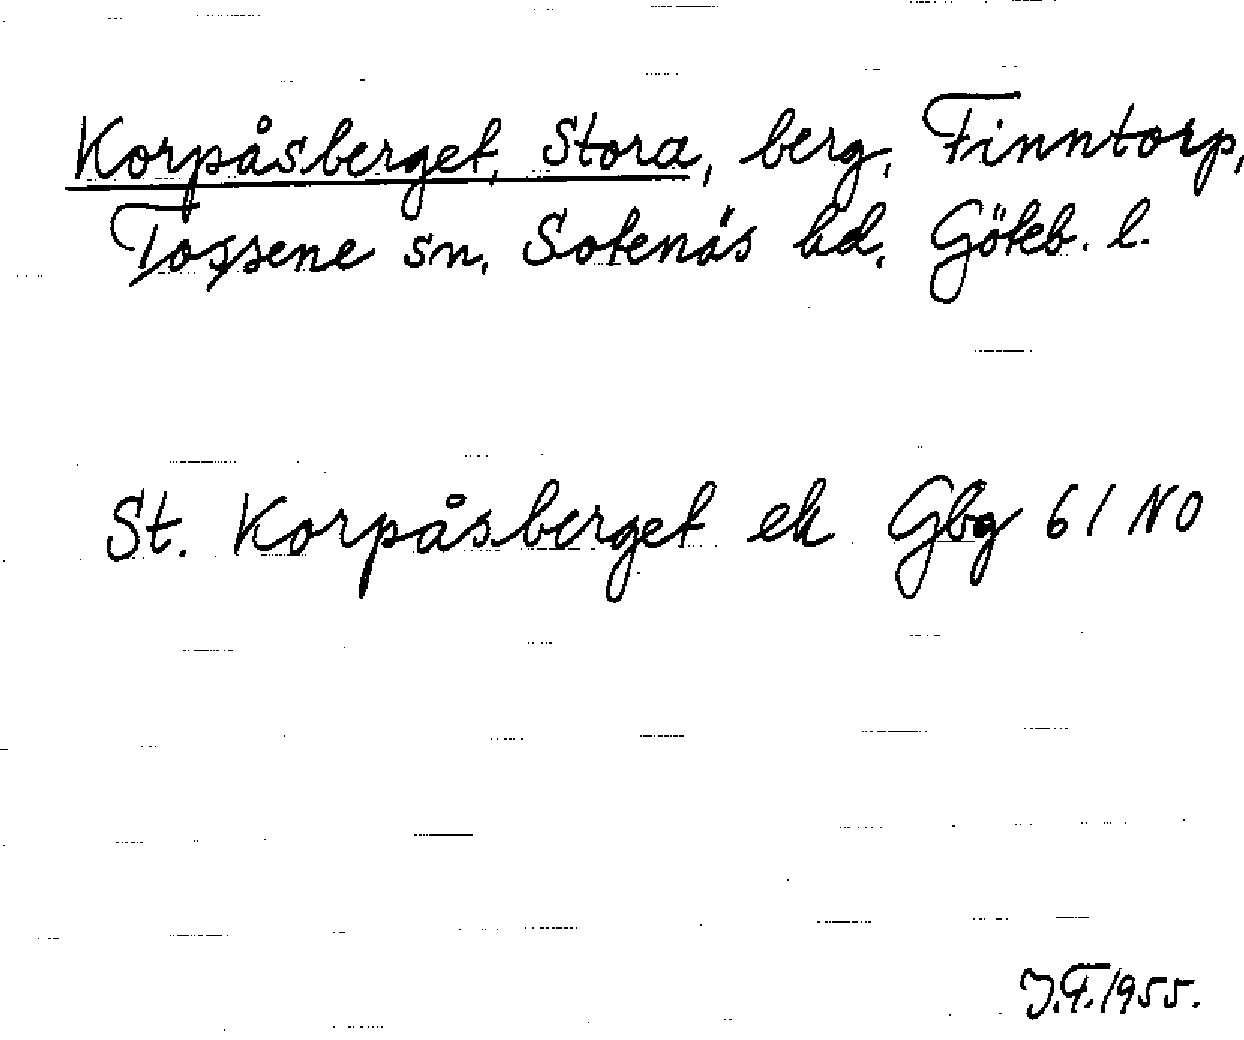 Korpåsberget, Stora, berg, Finntorp,
Tossene sn, Sotenäs hd, Göteb. l.
St. Korpåsberget ek Gbg 61 NO
J.F. 1955.